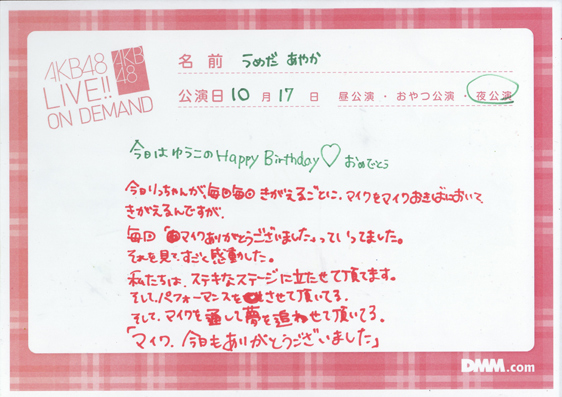 AKB48
LIVE!!
ON DEMAND
AKB
48
名前 うめだ あやか
公演日 10 月 17 日 昼公演・おやつ公演・夜公演
今日はゆうこのHappy Birthday♡おめでとう
今日りっちゃんが、毎回毎回 きがえるごとに、マイクをマイクおきばにおいて、
きがえるんですが、
毎回「マイクありがとうございました。」っていってました。
それを見て、すごく感動した。
私たちは、ステキなステージに立たせて頂てます。
そして、パフォーマンスをさせて頂いてる。
そして、マイクを通して夢を追わせて頂いてる。
「マイク、今日もありがとうございました」
DMM.com